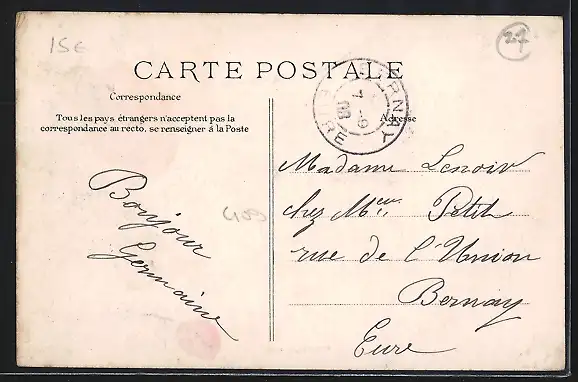 15€
27
CARTE POSTALE
Correspondance
Tous les pays étrangers n'acceptent pas la
correspondance au recto, se renseigner à la Poste
Adresse
BERNAY
7 -9
08
EURE
Bonjour
Germaine
409
Madame Lenoir
chez Mr. Petit
rue de l'Union
Bernay
Eure